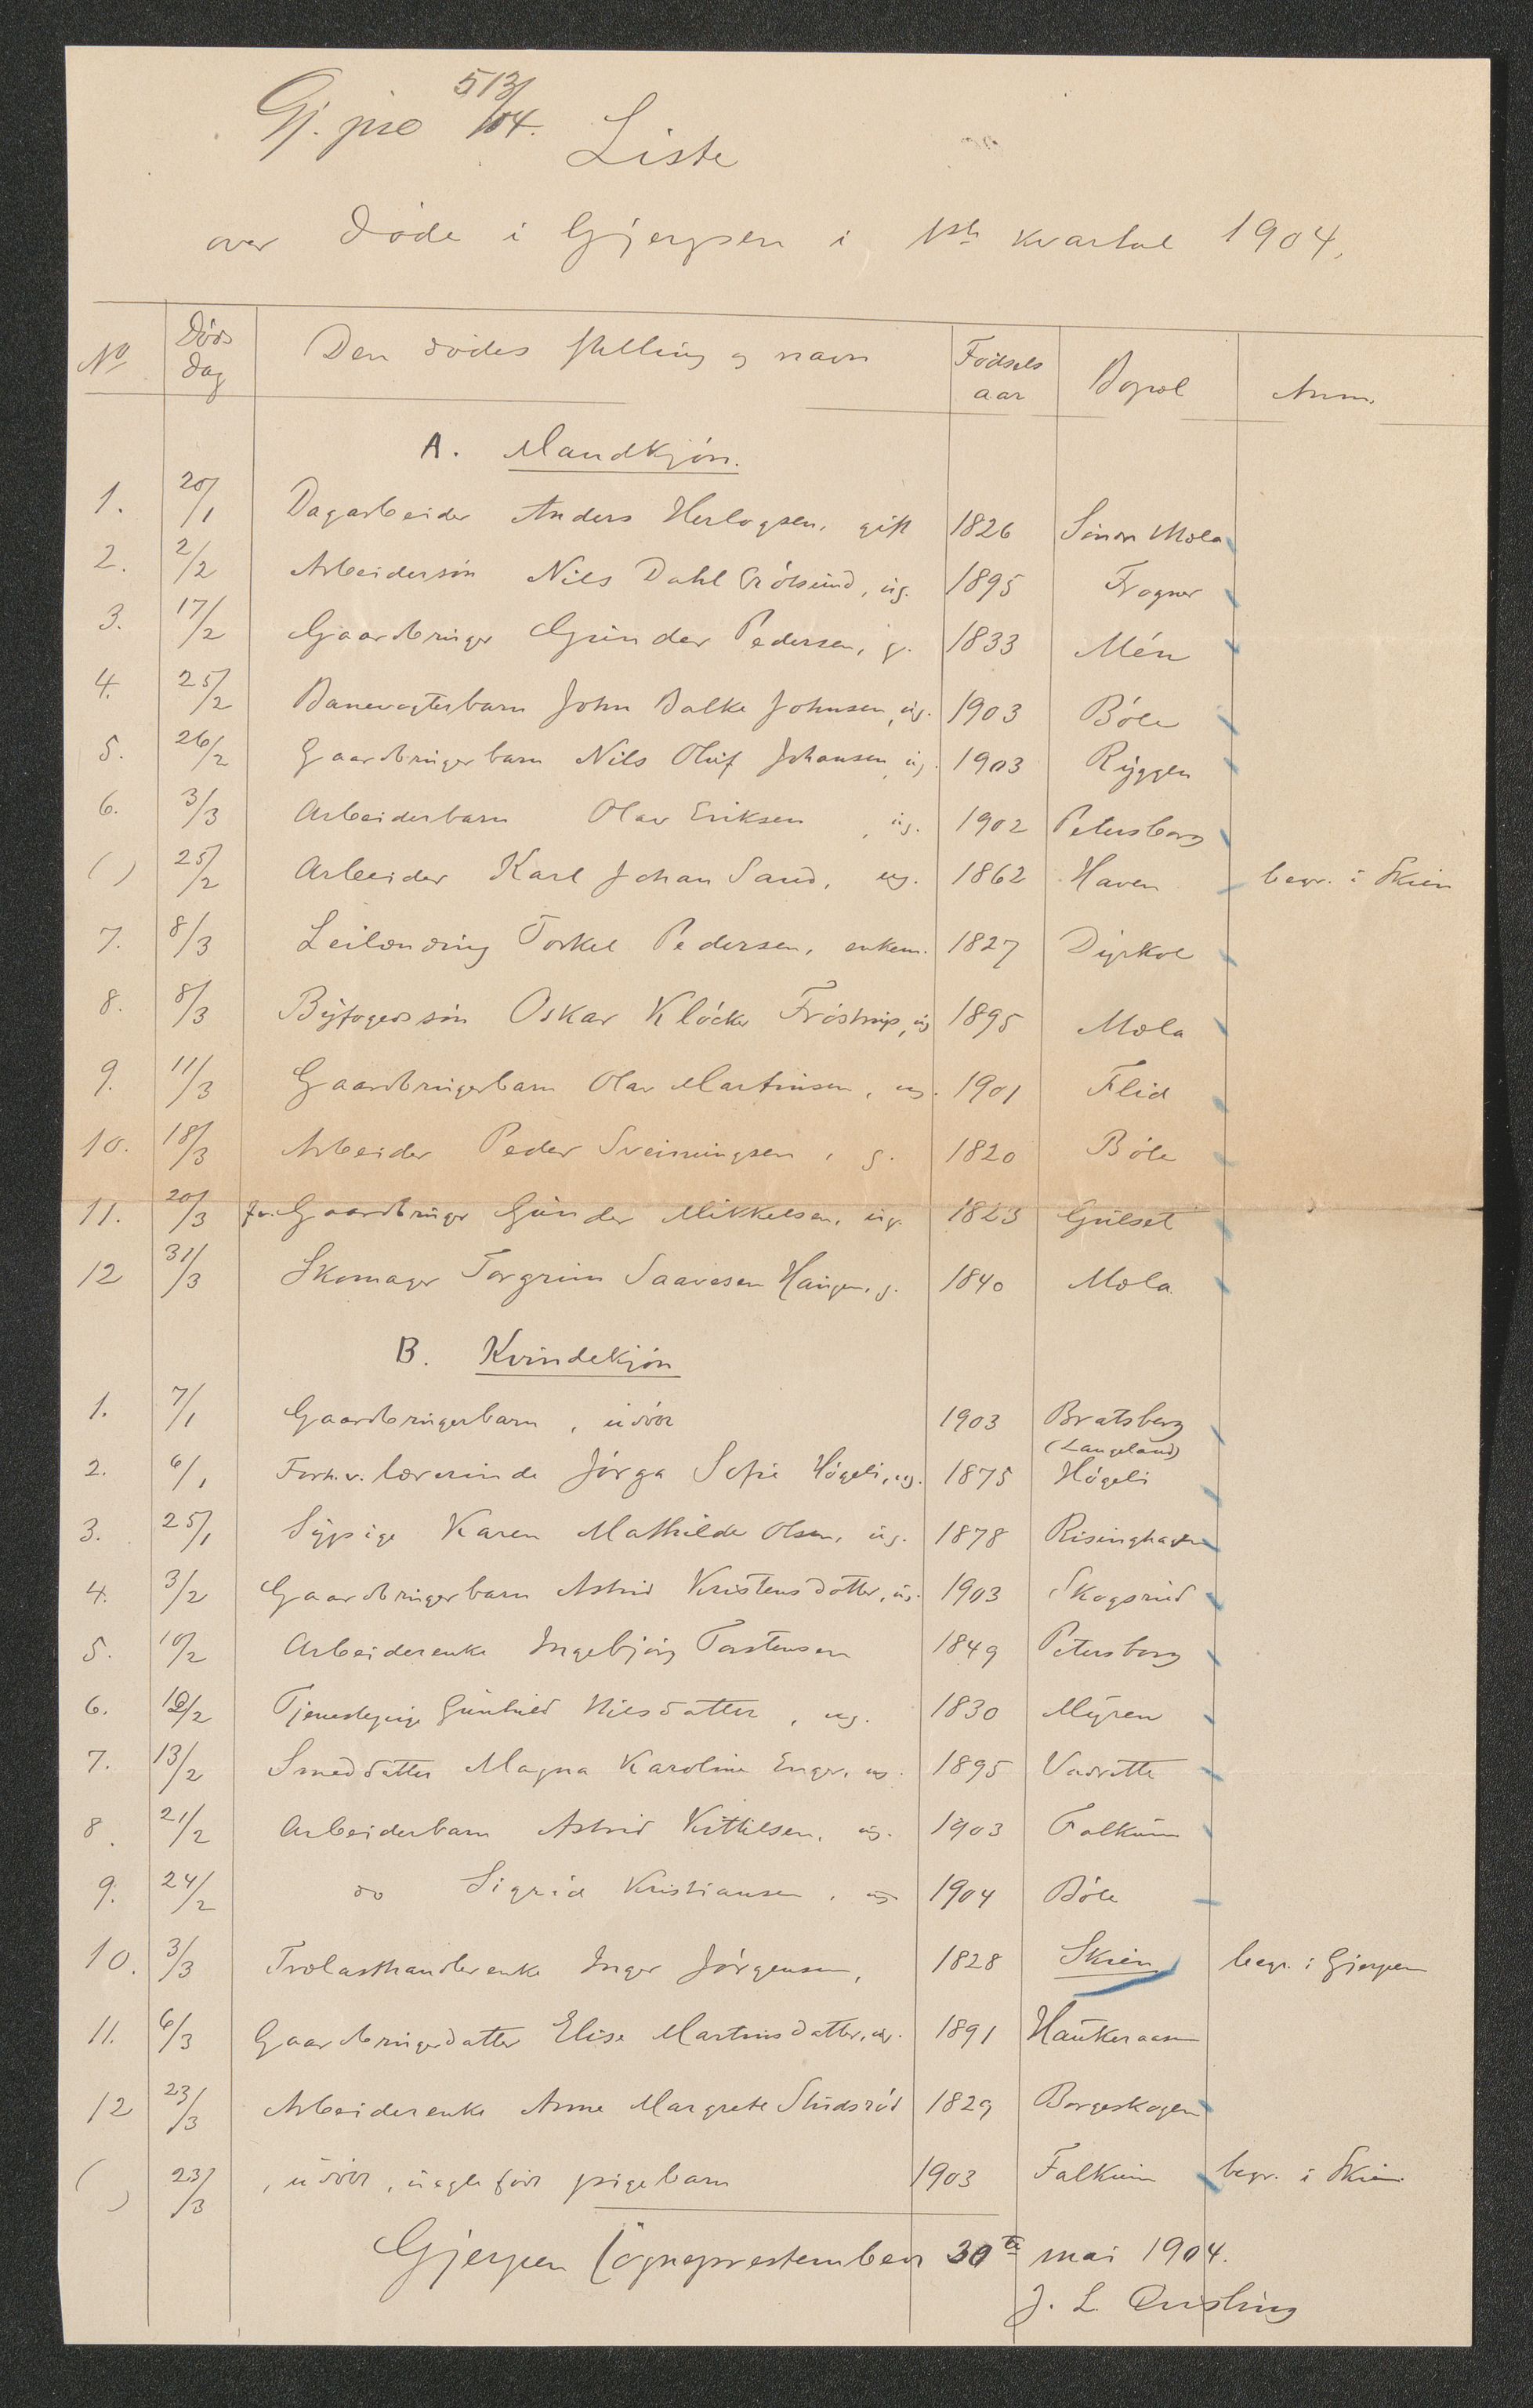 Gj. pro 513/04.
Liste
over døde i Gjerpen i 1ste kvartal 1904.
No Døds dag Den dødes stilling og navn Fødsels aar Bopæl Anm.
A. Mandkjøn.
1. 20/1 Dagarbeider Anders Herlogsen, gift 1826 Søndre Mæla
2. 2/2 Arbeidersøn Nils Dahl, ug. 1895 Frogner
3. 17/2 Gaardbruger Gunder Pedersen, g. 1833 Mén
4. 25/2 Banevogterbarn John Balke Johnsen, ug. 1903 Bøle
5. 26/2 Gaardbrugerbarn Nils Oluf Johansen, ug. 1903 Ryggen
6. 3/3 Arbeiderbarn Olav Eriksen, ug. 1902 Petersborg
( ) 25/2 Arbeider Karl Johan Sand, ug. 1862 Haven begr. i Skien
7. 8/3 Leilænding Torkel Pedersen, enkem. 1827 Dyrkol
8. 8/3 Byfogedssøn Oskar Kløcker Frøstrup, ug 1895 Mæla
9. 11/3 Gaardbrugerbarn Olav Martinsen, ug. 1901 Flid
10. 18/3 Arbeider Peder Sveinungsen, g. 1820 Bøle
11. 20/3 fv. Gaardbruger Gunder Mikkelsen, ug. 1823 Gulset
12 31/3 Skomager Torgrim Saavesen Haugen, g. 1840 Mæla
B. Kvindekjøn
1. 7/1 Gaardbrugerbarn, udøbt 1903 Bratsberg
(Langeland)
2. 6/1 Forh.v. lærerinde Jørga Sofie Høgeli, ug. 1875 Høgeli
3. 25/1 Sypige Karen Mathilde Olsen, ug. 1878 Risinghaven
4. 3/2 Gaardbrugerbarn Astrid Kristensdatter, ug. 1903 Skogsrud
5. 10/2 Arbeiderenke Ingebjørg Torstensen 1849 Petersborg
6. 12/2 Tjenestepige Gunhild Nilsdatter, ug. 1830 Myren
7. 13/2 Smeddatter Magna Karoline Enger, ug. 1895 Vadrette
8. 21/2 Arbeiderbarn Astrid Kittilsen, ug. 1903 Falkum
9. 24/2 do Sigrid Kristiansen, ug 1904 Bøle
10. 3/3 Trælasthandlerenke Inger Jørgensen, 1828 Skien begr. i Gjerpen
11. 6/3 Gaardbrugerdatter Elise Martinsdatter, ug. 1891 Haukeraasen
12 23/3 Arbeiderenke Anne Margrete Studsrød 1829 Borgeskogen
( ) 23/3 , udøbt, uægte født pigebarn 1903 Falkum begr. i Skien
Gjerpen sogneprestembede 30te mai 1904.
J. L. Quisling